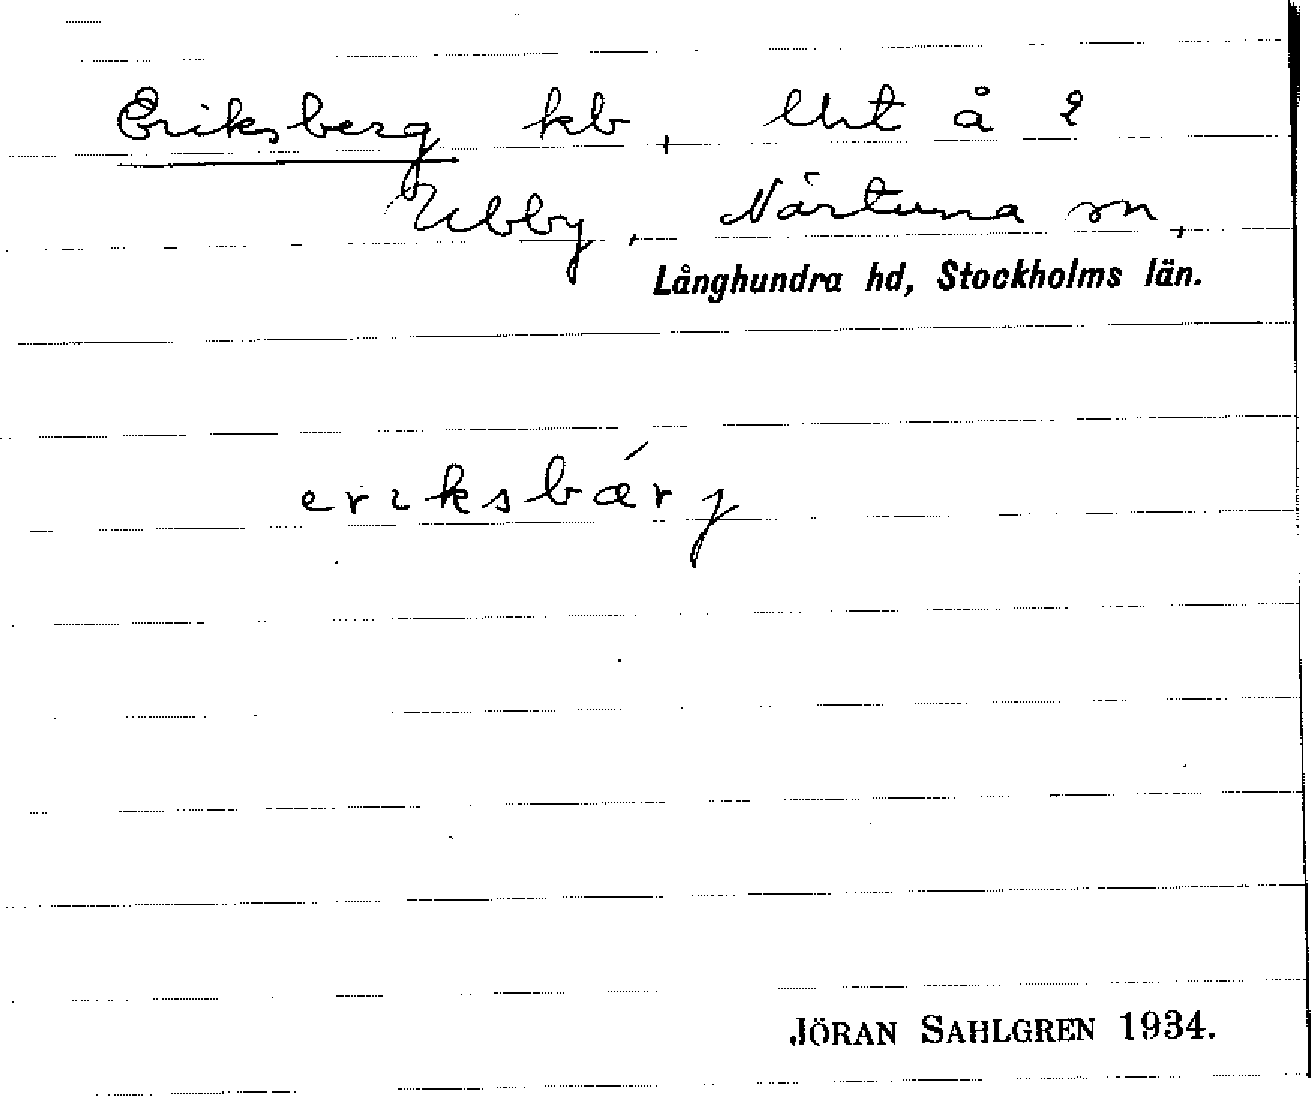 Eriksberg kb, Uht å 2
Ubby, Närtuna sn,
Långhundra hd, Stockholms län.
eriksbǽrj
JÖRAN SAHLGREN 1934.